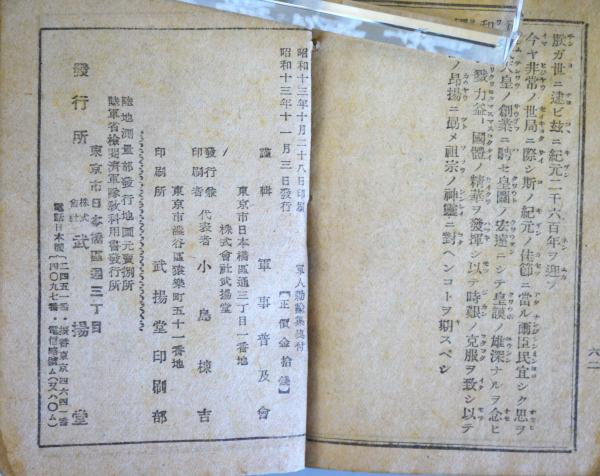 朕ガ世ニ逮ビ玆ニ紀元二千六百年ヲ迎フ
今ヤ非常ノ世局ニ際シ斯ノ紀元ノ佳節ニ當ル爾臣民宜シク思ヲ
天皇ノ創業ニ騁セ皇圖ノ宏遠ニシテ皇謨ノ雄深ナルヲ念ヒ
戮力益々國體ノ精華ヲ發揮シ以テ時艱ノ克服ヲ致シ以テ
ノ昂揚ニ勗メ祖宗ノ神靈ニ對ヘンコトヲ期スベシ
六二
昭和十三年十月二十八日印刷
昭和十三年十一月三日發行
軍人勅諭集奥付
【正價金拾錢】
謹輯 軍事普及會
東京市日本橋區通三丁目一番地
株式會社武揚堂
發行兼印刷者 代表者 小島棟吉
東京市澁谷區猿樂町五十一番地
印刷所 武揚堂印刷部
陸地測量部發行地圖元賣捌所
陸軍省檢閲濟軍隊敎科用書發行所
東京市日本橋區通三丁目
發行所 株式會社 武揚堂
電話日本橋 二四五一番・振替東京四六四一番
四〇九七番・電信略號ム(又ハ〇ム)